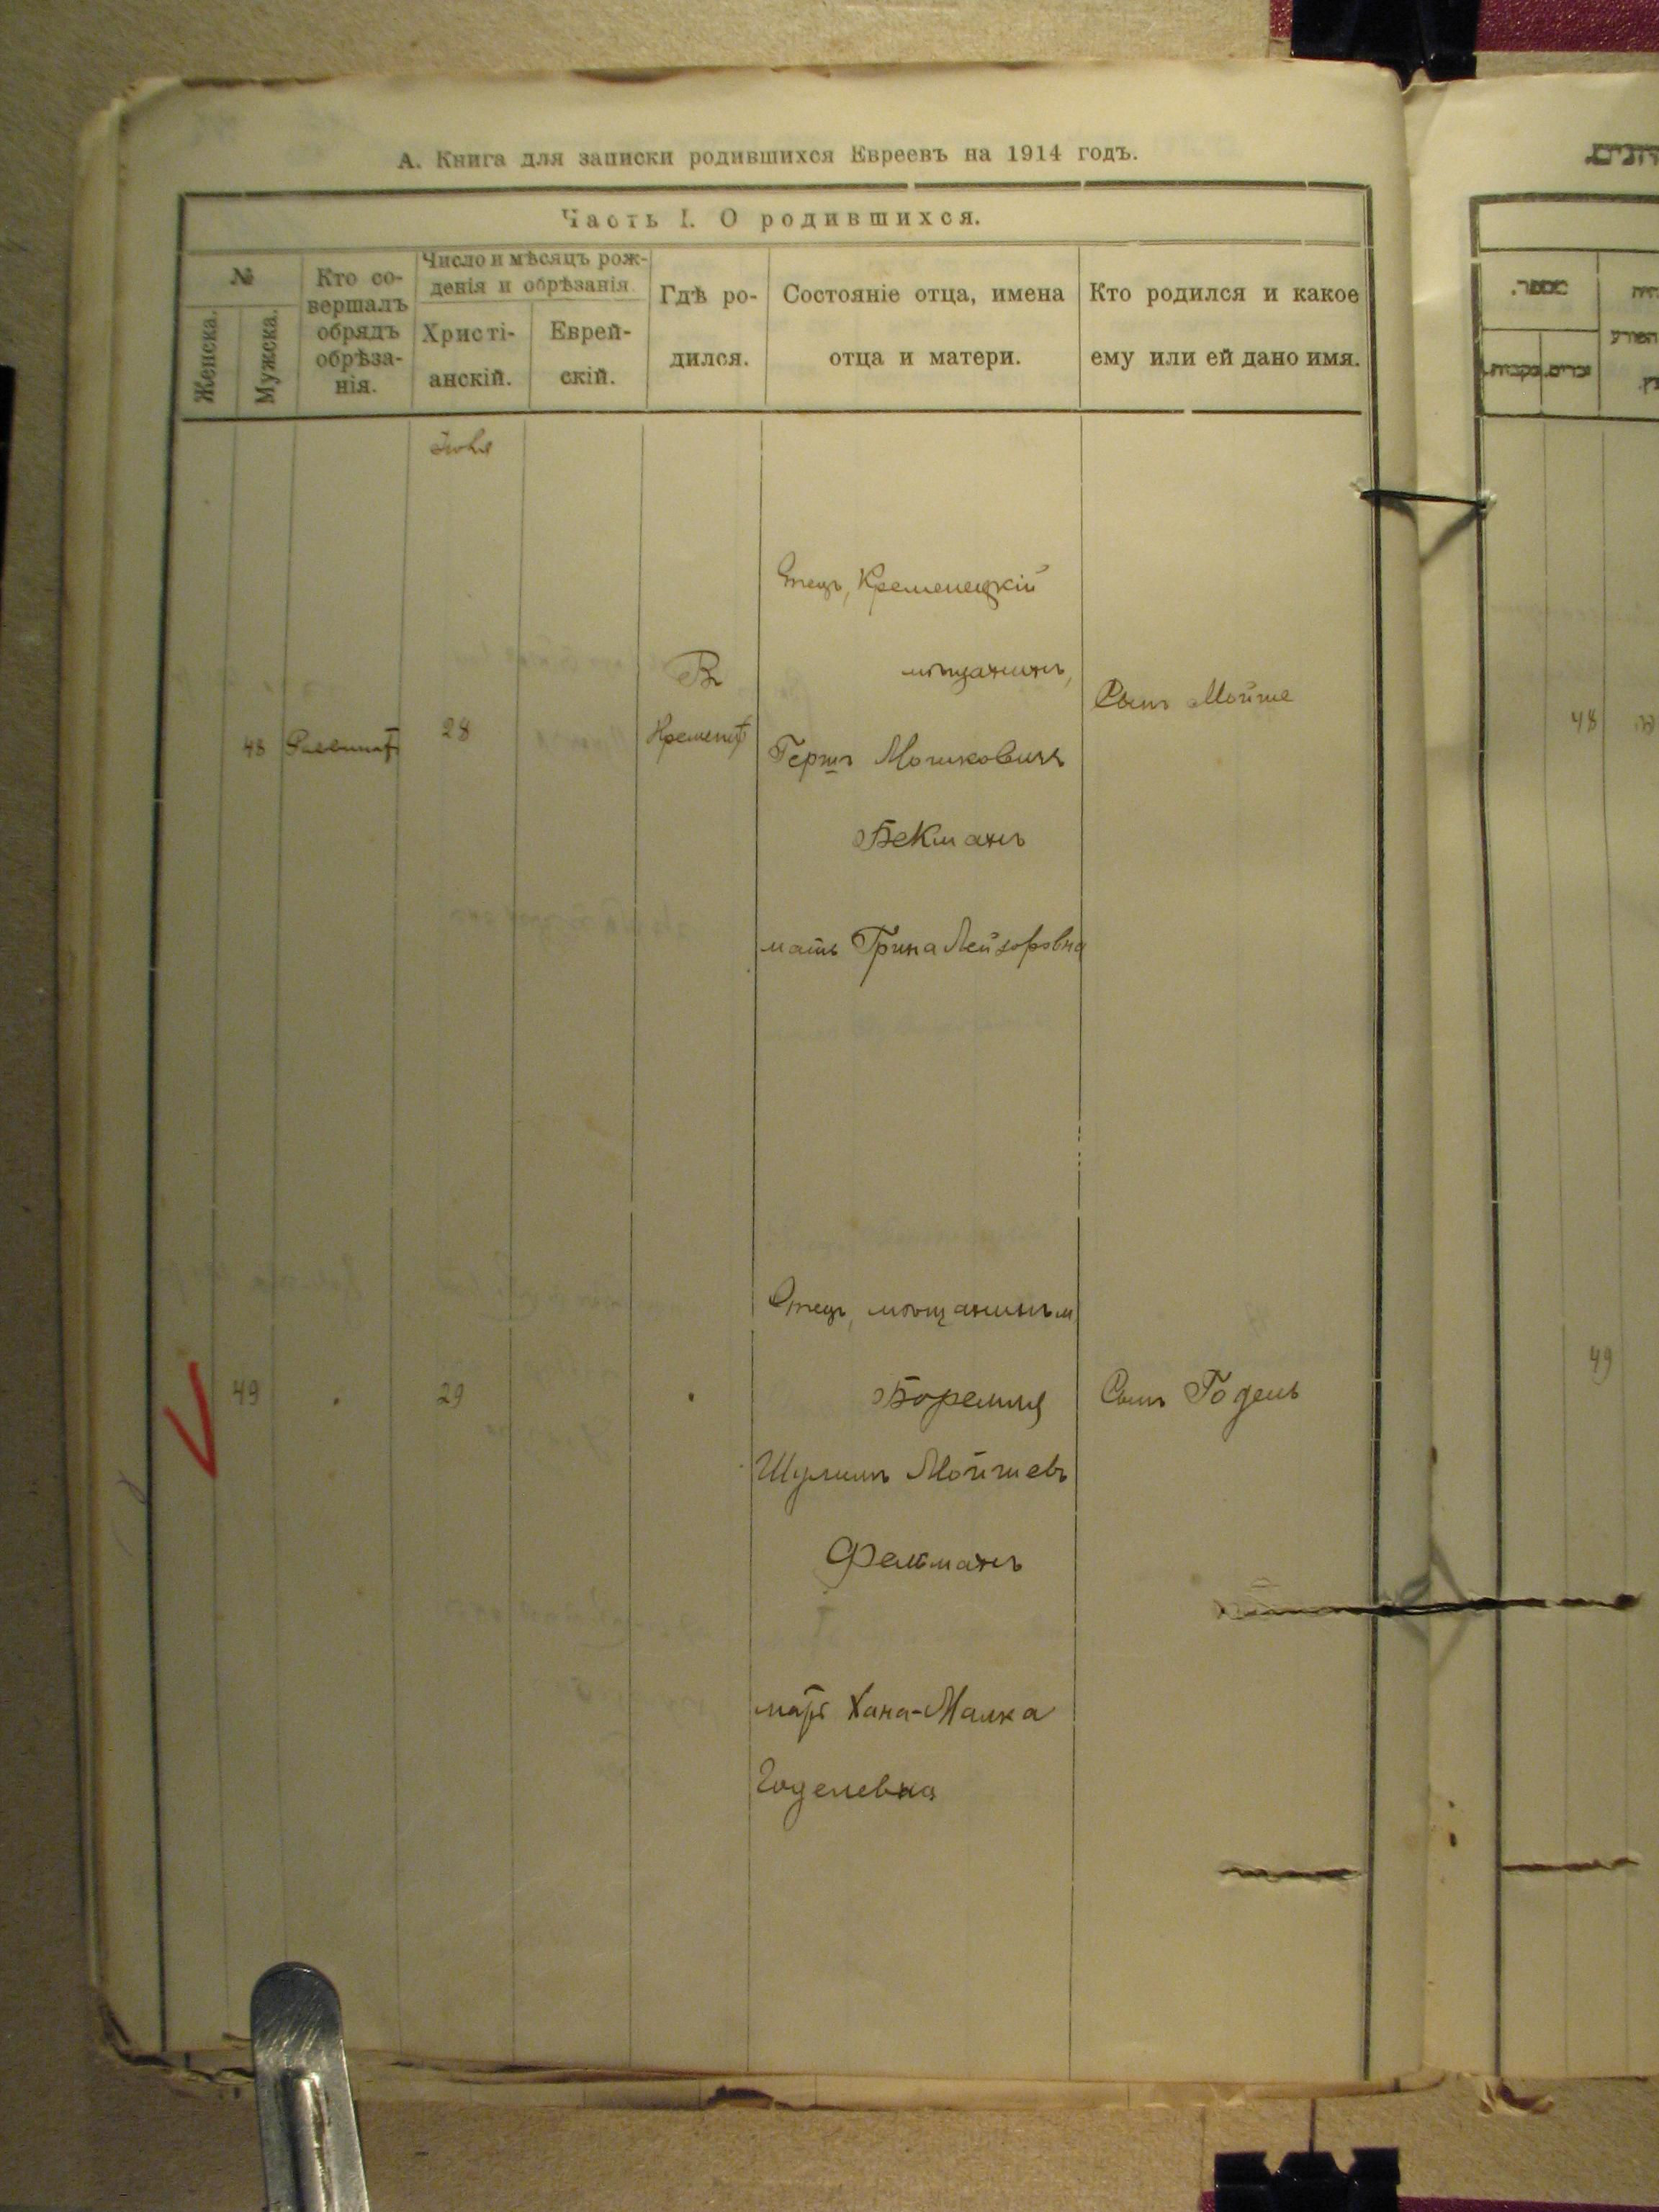 А. Книга для записки родившихся Евреевъ на 1914 годъ.
Часть I. О родившихся.
№
Женска.
Мужска.
Кто со-
вершалъ
обрядъ
обрѣза-
нія.
Число и мѣсяцъ рож-
денія и обрѣзанія
Христі-
анскій.
Еврей-
скій.
Гдѣ ро-
дился.
Состояніе отца, имена
отца и матери.
Кто родился и какое
ему или ей дано имя.
מספר.
זכרים.
נקבות.
48
28
Въ
Кременцѣ
Отецъ, Кременецкій
мѣщанинъ,
Гершъ Мошковичъ
Бекманъ
мать Грина Лейзоровна
Сынъ Мойше
48
49
29
Отецъ, мѣщанинъ м.
Боремля
Шулимъ Мойшевъ
Фельманъ
мать Хана-Малка
Годелевна
Сынъ Годель
49